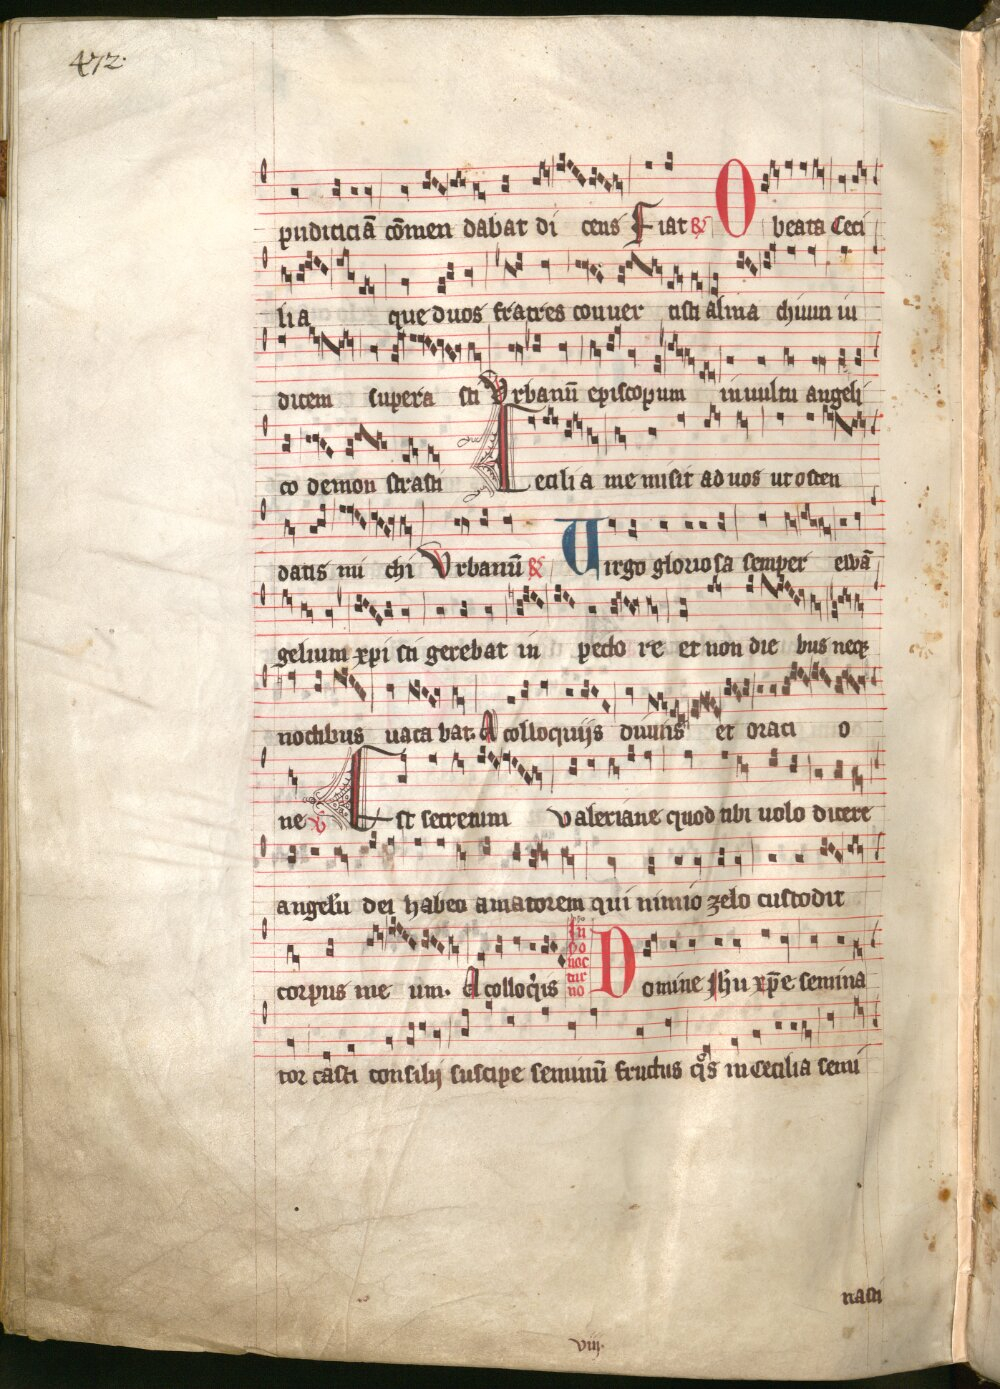 472.
pudiciciā cōmen dabat di cens Fiat R O beata Ceci
lia que duos fratres conuer tisti alma chium iu
dicem supera sti Vrbanū episcopum in uultu angeli
co demon strasti Cecili a me misit ad uos ut osten
datis mi chi Vrbanū R Uirgo gloriosa semper ewā
gelium xpi sti gerebat in pecto re et non die bus neqz
noctibus uaca bat. A colloquijs diuinis et oraci o
ne V Est secretum Valeriane quod tibi uolo dicere
angelū dei habeo amatorem qui nimio zelo custodit
corpus me um. A colloqis In ijo noc tur no Domine Jhu xpe semina
tor casti consilij suscipe seminū fructus qs in Cecilia semi
nasti
viij.